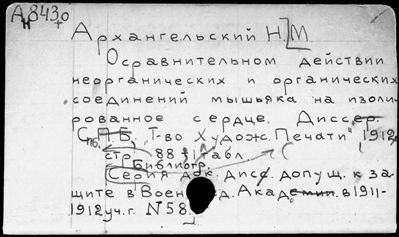 А 8430
Архангельский Н]М
О сравнительном действии
неорганических и органических
соединений мышьяка на изоли-
рованное сердце. Диссер.
СПБ, "Т-во Худож. Печати" 1912,
стр 88 1 табл.
Библиогр.
Серия док. дисс. допущ. к за-
щите в Воен д. Академии. в 1911-
1912 уч. г. №58]